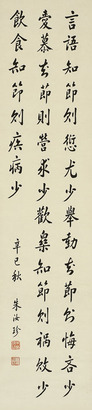 言語知節則愆尤少舉動知節則悔吝少
愛慕知節則營求少歡樂知節則禍敗少
飲食知節則疾病少
辛巳秋 朱汝珍